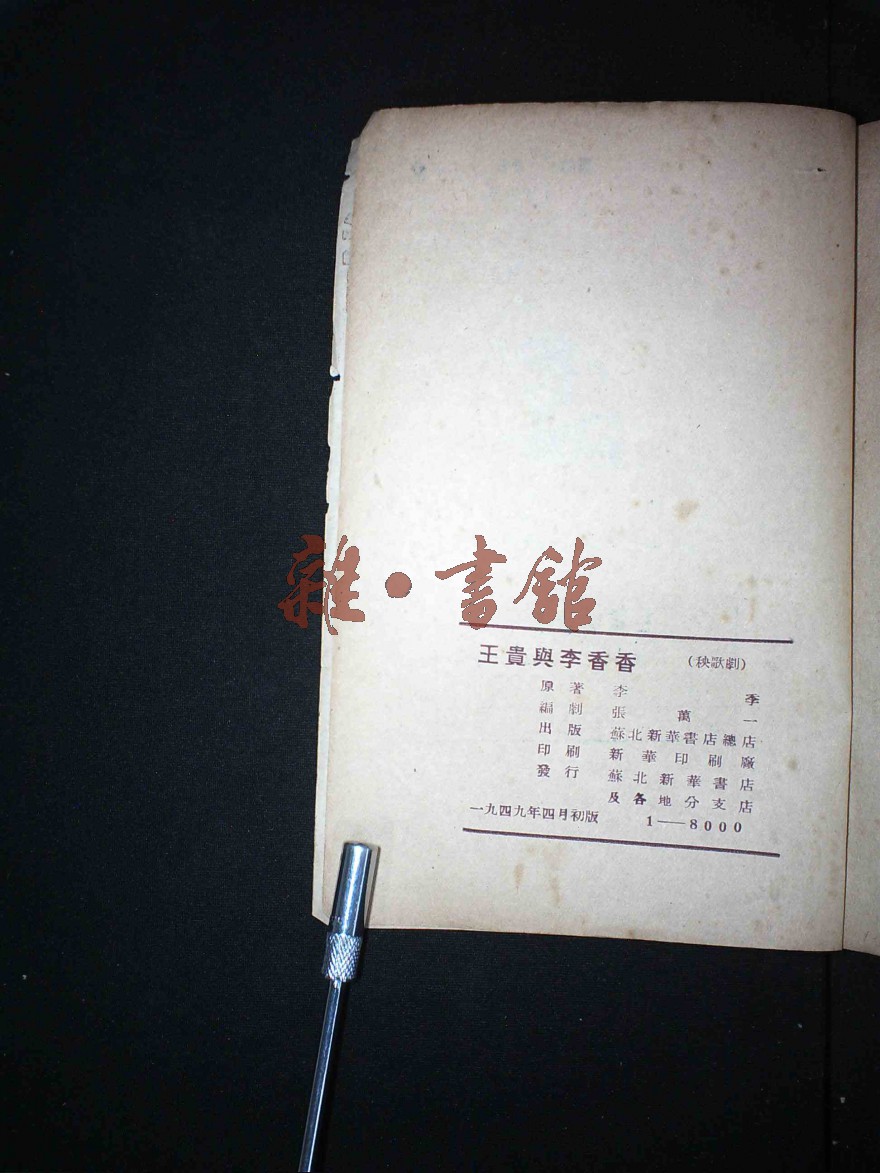 雜·書館
王貴與李香香 (秧歌劇)
原著 李季
編劇 張萬一
出版 蘇北新華書店總店
印刷 新華印刷廠
發行 蘇北新華書店
及各地分支店
一九四九年四月初版 1—8000